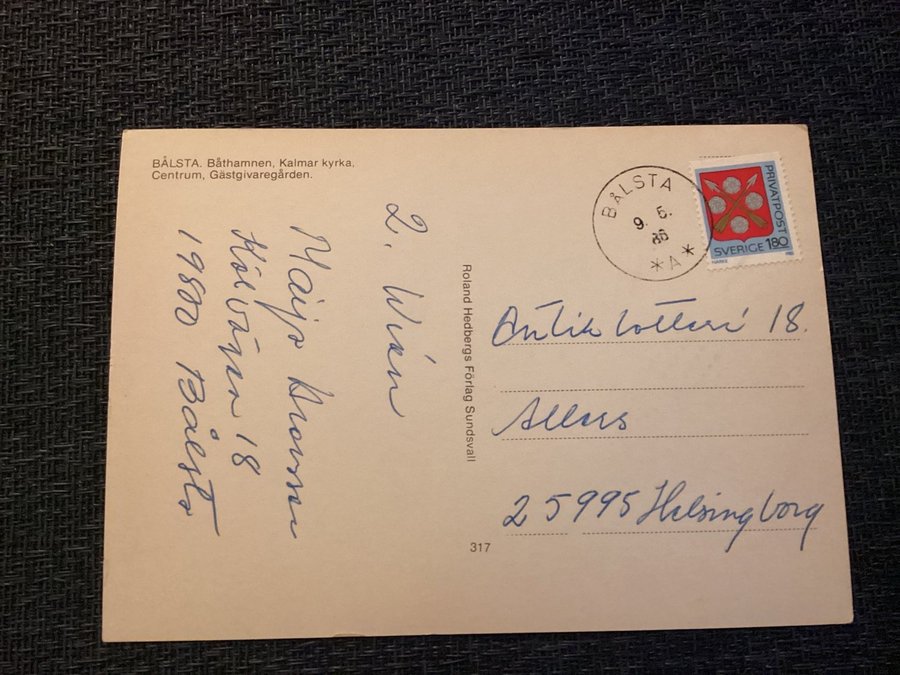 BÅLSTA. Båthamnen, Kalmar kyrka,
Centrum, Gästgivaregården.
2. Wien
Maijs
18
19800 Bålsta
Roland Hedbergs Förlag Sundsvall
317
BÅLSTA
9. 5.
86
*A*
PRIVATPOST
SVERIGE 180
Antiklotteri 18.
Allers
25995 Helsingborg